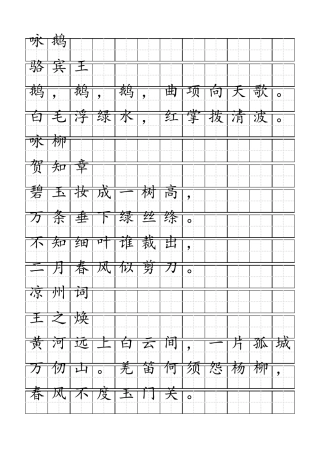 咏鹅
骆宾王
鹅，鹅，鹅，曲项向天歌。
白毛浮绿水，红掌拨清波。
咏柳
贺知章
碧玉妆成一树高，
万条垂下绿丝绦。
不知细叶谁裁出，
二月春风似剪刀。
凉州词
王之焕
黄河远上白云间，一片孤城
万仞山。羌笛何须怨杨柳，
春风不度玉门关。